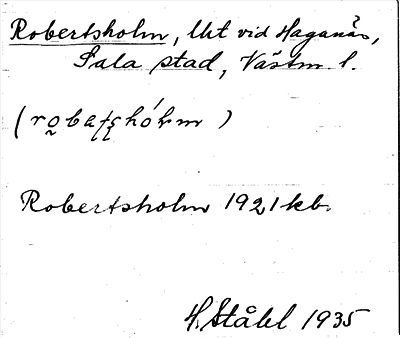 Robertsholm, Lht vid Haganäs,
Sala stad, Västm. l.
Robertsholm 1921 kb.
H. Ståhl 1935